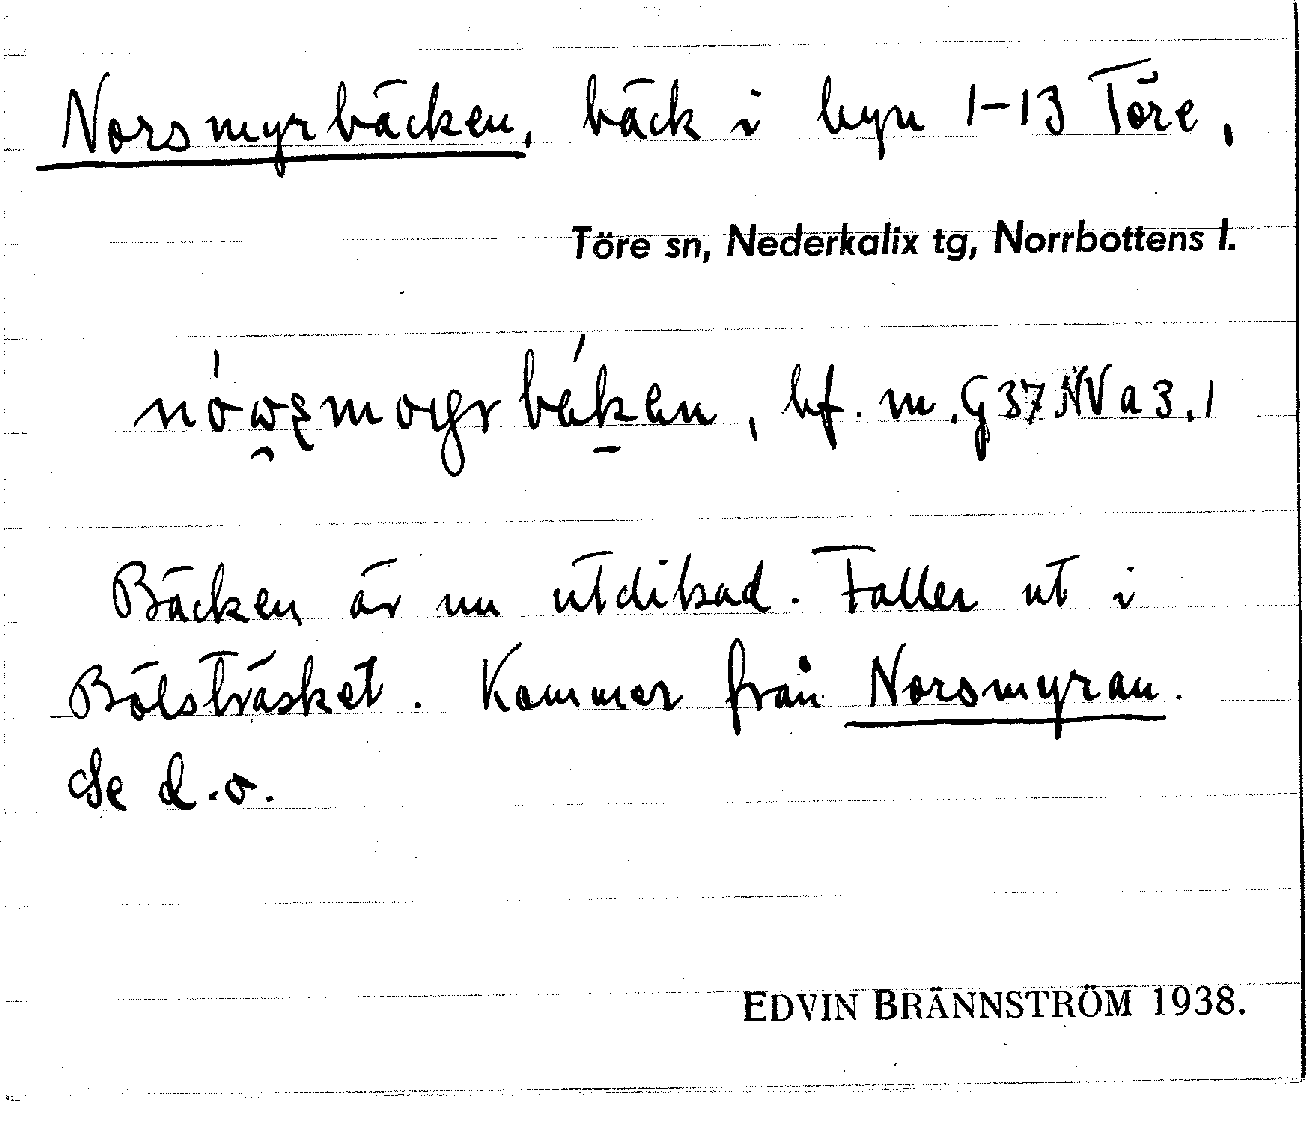 Norsmyrbäcken, bäck i byn 1-13 Töre,
Töre sn, Nederkalix tg, Norrbottens l.
bf. m. G 37 NV a 3.1
Bäcken är nu utdikad. Faller ut i
Bölsträsket. Kommer från Norsmyran.
Se d.o.
EDVIN BRÄNNSTRÖM 1938.